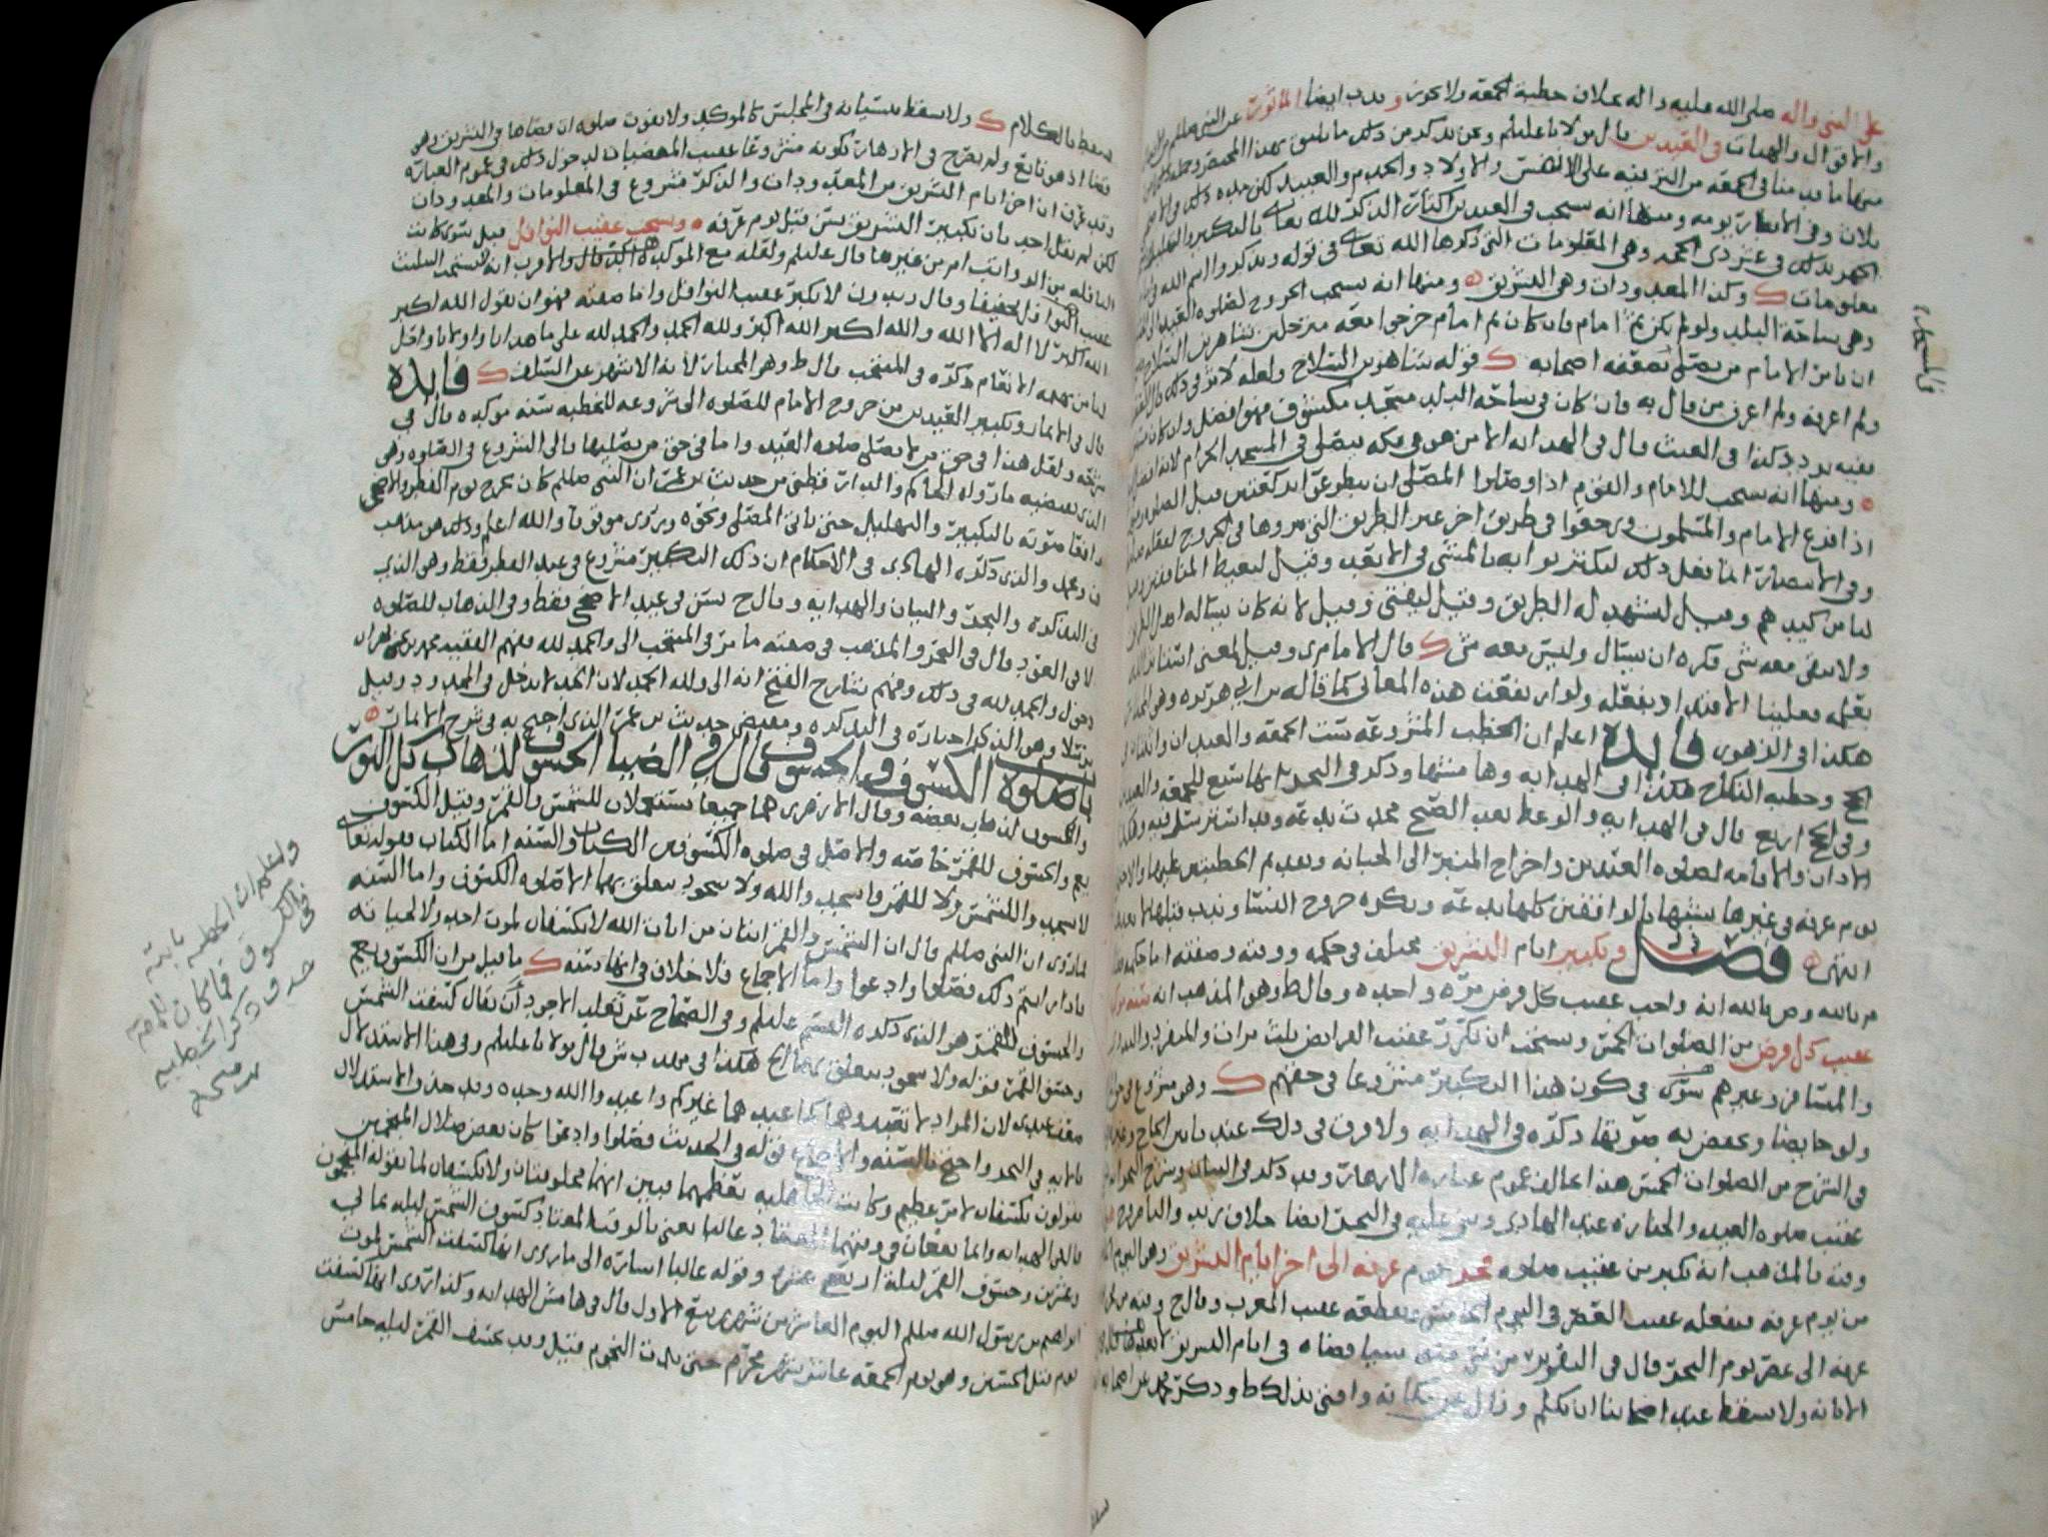 على النبي واله صلى الله عليه واله بخلاف خطبة الجمعة ولا يجوز وندب ايضا المأثور عن النبي صللم من
والاقوال والهيات في العيدين قال مولانا عليلم ونحن نذكر من ذلك ما يليق بهذا المختصر
منها ما ندب منا في الجمعة من التزيد على الانفس والاولاد والخدم والعبيد لكن هذه
ثلاث وفي الابهار يومه ومنها انه يستحب في العيدين اكثار الذكر لله تعالى بالتكبير والتهليل
الجهر بذلك في عشر ذي الحجه وهي المعلومات التي ذكرها الله تعالى في قوله ويذكروا اسم الله في
معلومات ك وكذا المعدودات وهي التشريق ومنها انه يستحب الخروج لصلوة العيد
وهي ساحة البلد ولو لم يكن ثم امام فان كان ثم امام خرجوا معه مترجلين شاهرين السلاح
ان يأمن الامام من يصلي بضعفة اصحابه ك قوله شاهرين السلاح ولعله لا يزال في ذلك
ولم اعرفه ولم اعرف من قال به فان كان في ساحة البلد مسجد مكشوف فهو افضل وان كان
ففيه تردد كذا في الغيث قال في الهدايه الا من هو في مكه فيصلي في المسجد الحرام لانه افضل
ومنها انه يستحب للامام والقوم اذا وصلوا المصلى ان يتطوعوا بركعتين قبل الصلوة
اذ افرغ الامام والمسلمون ورجعوا في طريق اخر غير الطريق التي مروها في الخروج لفعله
وفي الانتصار انما يفعل ذلك ليكثر ثوابه بالمشي في الابعد وقيل ليغيظ المنافقين
ليامن كيدهم وقيل ليشهد له الطريق وقيل ليفتي وقيل لانه كان يساله اهل الطريق
ولا يبقى معه شي فكره ان يسال وليس معه شي ك قال الامام ي وقيل لمعنى استأثر الله
بعلمه فعلينا الاقتدا وبفعله ولو ارتفعت هذه المعاني كما قاله بن ابي هريره
هكذا في الزهور فايدة اعلم ان الخطب المشروعة ست الجمعة والعيدان
الحج وخطبه النكاح هكذا في الهدايه وهامشها وذكر في البحر انها تسع للجمعه والعيدين
وفي الحج اربع قال في الهدايه والوعظ بعد الصبح محدث بدعه وقد استرسل فيه
الاذان والاقامه لصلوة العيدين واخراج المنبر الى الجبانه وتقديم الخطبتين عليها
يوم عرفه في غيرها تشبها بالواقفين كلها بدعه ويكره خروج النسا وندب قبلها
انتهى فصل وتكبير ايام التشريق مختلف في حكمه ووقته وصفته اما حكمه
م بالله وص بالله انه واجب عقيب كل فرض مره واحده وقال ط وهو المذهب انه سنه
عقيب كل فرض من الصلوات الخمس ويستحب ان يكرر عقيب الفرايض ثلاث مرات والمنفرد
والمسافر وغيرهم سوى في كون هذا التكبير مشروعا في حقهم ك وهو مشروع
ولو حايضا وتخفض به صوتها ذكره في الهدايه ولا فرق في ذلك عندنا بين الحاج وغيره
في الشرح من الصلوات الخمس هذا مخالف عموم عباره الازهار وقد ذكر في البيان وشرح البحر
عقيب صلوه العيد والجنازه عند الهادي ونص عليه في البحر ايضا خلاف زيد والناصر
وقته فالمذهب انه يكبر من عقيب صلاة فجر يوم عرفه الى اخر ايام التشريق وهو اليوم
من يوم عرفه فيفعله عقيب العصر في اليوم الخامس ويقطعه عقيب المغرب وقال ح وقته من فجر
عرفه الى عصر يوم النحر قال في التقرير من نسي فيه سيما قضاه في ايام التشريق
الابانه ولا يسقط عند اصحابنا ان تكلم وزال عن مكانه وافتى بذلك ط وذكر محمد عن اصحابه
في المسجد
يسقط بالكلام ك ولا يسقط بنسيانه في المجلس كالموكد ولا بفوت صلوة ان قضاها في التشريق وهو
قضا اذ هو تابع ولم يصرح في الازهار بكونه مشروعا عقيب المقضيات لدخول ذلك في عموم العباره
وقد عرفت ان اخر ايام التشريق من المعدودات والذكر مشروع في المعلومات والمعدودات
لكن لم يقل احد بان تكبير التشريق يسن قبل يوم عرفه ويستحب عقيب النوافل قيل سوى كانت
النافله من الرواتب ام من غيرها قال عليلم ولعله مع الموكده اكد قال والاقرب انه يستحب التثليث
عقيب النوافل تخفيفا وقال ر ون لا يكبر عقيب النوافل واما صفته فهو ان يقول الله اكبر
الله اكبر لا اله الا الله والله اكبر الله اكبر ولله الحمد والحمد لله على ما هدانا واولانا واحل
لنا من بهيمه الانعام ذكره في المنتخب قال ط وهو المختار لأنه الاشهر عن السلف ك فايدة
قال في الانمار وتكبير العيدين من خروج الامام للصلوة الى شروعه للخطبه سنه موكده قال في
شرحه ولعل هذا في حق من لا يصلي صلوة العيد واما في حق من يصليها فالى الشروع في الصلوه وهو
الذي يقتضيه ما رواه الحاكم والدار قطني من حديث بن عمر ان النبي صللم كان يخرج يوم الفطر والاضحى
رافعا صوته بالتكبير والتهليل حتى ياتي المصلى ونحوه ويروى موقوفا والله اعلم وذلك هو مذهب
ن ومحمد والذي ذكره الهادي في الاحكام ان ذلك التكبير مشروع في عيد الفطر فقط وهو الذي
في التذكرة والبحر والبيان والهدايه وقال ح يسن في عيد الاضحى فقط وفي الذهاب للصلوة
لا في العود قال في البحر والمذهب في صفته ما مر في المنتخب الى والحمد لله ففهم الفقيه محمد بن عمران
دخول والحمد لله في ذلك وفهم شارح الفتح انه الى ولله الحمد لان الحد لا يدخل في المحدود وقيل
يرتلا وهو الذي اختاره في التذكره وبمقتضى حديث بن عمر الذي احتج به في شرح الابانة
باب صلوة الكسوف والخسوف قال في الضيا الخسوف لذهاب كل النور
والكسوف لذهاب بعضه وقال الازهري هما جميعا يستعملان للشمس والقمر وقيل الكسوف
يعم والخسوف للقمر خاصه والاصل في صلوة الكسوفين الكتاب والسنه اما الكتاب فقوله تعالى
لا تسجدوا للشمس ولا للقمر واسجدوا لله ولا سجود يتعلق بهما الا صلوه الكسوف واما السنه
فما روي ان النبي صللم قال ان الشمس والقمر ايتان من ايات الله لا يكسفان لموت احد ولا لحياته
فاذا رايتم ذلك فصلوا وادعوا واما الاجماع فلا خلاف في انها سنه ك ما قيل من ان الكسوف يعم
والخسوف للقمر هو الذي ذكره القسم عليلم وفي الصحاح عن ثعلب الاجود أن يقال كسفت الشمس
وخسف القمر قوله ولا سجود يتعلق بهما الخ هكذا في بهد ب ش قال مولانا عليلم وفي هذا الاستدلال
ضعف عندي لان المراد لا تعبدوهما كما عبدهما غيركم واعبدوا الله وحده وقد حذف الاستدلال
بالايه في البحر واحتج بالسنه والاجماع قوله في الحديث فصلوا وادعوا كان بعض ضلال المنجمين
يقولون يكسفان لامر عظيم وكانت الجاهليه تعظمهما فبين انهما مخلوقتان ولا يكسفان لما يقوله المنجمون
قال في الهدايه وانما يقعان في وقتهما المعتاد غالبا يعني بالوقت المعتاد كسوف الشمس ليله ثماني
وعشرين وخسوف القمر ليلة اربع عشره وقوله غالبا اشاره الى ما روي انها كسفت الشمس لموت
ابراهيم بن رسول الله صللم اليوم العاشر من شهر ربيع الاول قال في هامش الهدايه وكذا روي انها كسفت
يوم قتل الحسين وهو يوم الجمعه عاشر شهر محرم حتى بدت النجوم فقيل وقد يخسف القمر ليله خامس
ولعلم ان الخطبه ثابته
في الكسوف فما كان للامام
حذف ذكر الخطبه